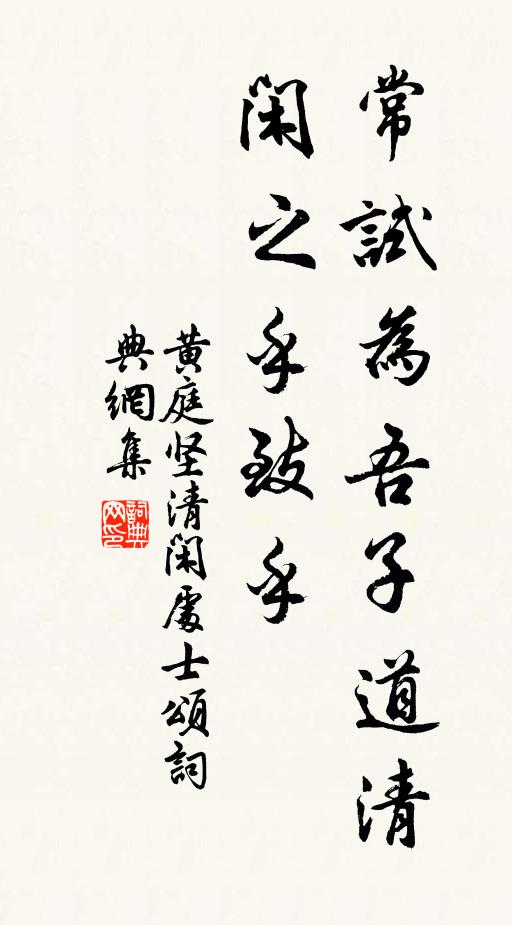 常試為吾子道清
閑之乎致乎
黄庭坚清閑處士頌詞
典網集
詞典网印